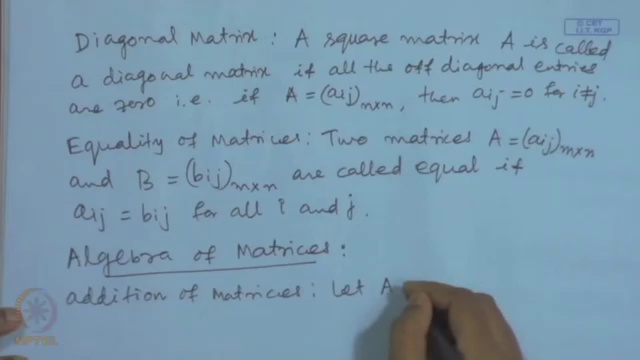 © CET
I.I.T. KGP
Diagonal Matrix : A square matrix A is called
a diagonal matrix if all the off diagonal entries
are zero i.e. if A = (aij)n×n, then aij = 0 for i≠j.
Equality of Matrices: Two matrices A = (aij)m×n
and B = (bij)m×n are called equal if
aij = bij for all i and j.
Algebra of Matrices:
addition of Matrices: Let A
NPTEL